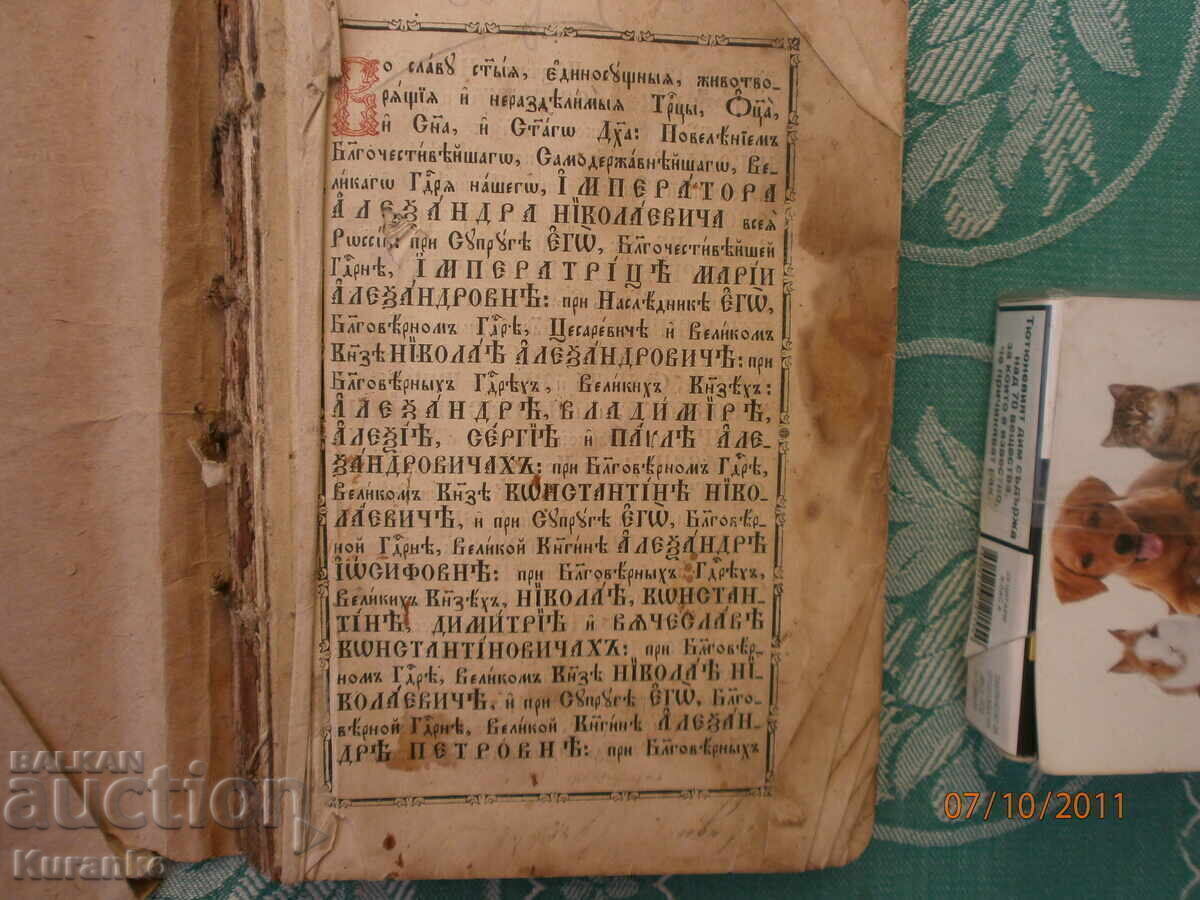 Во сла́ву ст҃ы́ѧ, є҆диносꙋ́щныѧ, животво-
рѧ́щїѧ и҆ нераздѣ́лимыѧ Трⷪ҇цы, Ѻ҆ц҃а̀,
и҆ Сн҃а, и҆ Ст҃а́гѡ Дх҃а: Повелѣ́нїемъ
Бл҃гочести́вѣйшагѡ, Самодержа́внѣйшагѡ, Ве-
ли́кагѡ Гдⷭ҇рѧ на́шегѡ, І҆МПЕРА́ТОРА
А҆ЛЕѮА́НДРА НЇКОЛА́ЕВИЧА всеѧ̀
Рѡссі́и: при Сꙋпрꙋ́гѣ Є҆ГѠ̀, Бл҃гочести́вѣйшей
Гдⷭ҇рнѣ, І҆МПЕРАТРІ́ЦѢ МАРІ́И
А҆ЛЕѮА́НДРОВНѢ: при Наслѣ́дникѣ Є҆ГѠ̀,
Бл҃говѣ́рномъ Гдⷭ҇рѣ, Цесаре́вичѣ и҆ Вели́комъ
Кн҃зѣ НЇКОЛА́Ѣ А҆ЛЕѮА́НДРОВИЧѢ: при
Бл҃говѣ́рныхъ Гдⷭ҇рѣхъ, Вели́кихъ Кн҃зѣхъ:
А҆ЛЕѮА́НДРѢ, ВЛАДИ́МІРѢ,
А҆ЛЕѮІ́Ѣ, СЕ́РГІѢ и҆ ПА́ѴЛѢ А҆ЛЕ-
ѮА́НДРОВИЧАХЪ: при Бл҃говѣ́рномъ Гдⷭ҇рѣ,
Вели́комъ Кн҃зѣ КѠНСТАНТІ́НѢ НЇКО-
ЛА́ЕВИЧѢ, и҆ при Сꙋпрꙋ́гѣ Є҆ГѠ̀, Бл҃говѣ́р-
ной Гдⷭ҇рнѣ, Вели́кой Кн҃ги́нѣ А҆ЛЕѮА́НДРѢ
І҆Ѡ́СИФОВНѢ: при Бл҃говѣ́рныхъ Гдⷭ҇рѣхъ,
Вели́кихъ Кн҃зѣхъ, НЇКОЛА́Ѣ, КѠНСТАН-
ТІ́НѢ, ДИМИ́ТРІѢ и҆ ВѦЧЕСЛА́ВѢ
КѠНСТАНТІ́НОВИЧАХЪ: при Бл҃говѣ́р-
номъ Гдⷭ҇рѣ, Вели́комъ Кн҃зѣ НЇКОЛА́Ѣ НЇ-
КОЛА́ЕВИЧѢ, и҆ при Сꙋпрꙋ́гѣ Є҆ГѠ̀, Бл҃го-
вѣ́рной Гдⷭ҇рнѣ, Вели́кой Кн҃ги́нѣ А҆ЛЕѮА́Н-
ДРѢ ПЕТРО́ВНѢ: при Бл҃говѣ́рныхъ
Тютюневият дим съдържа
над 70 вещества,
за които е известно,
че причиняват рак.
BALKAN
auction
Kuranko
07/10/2011